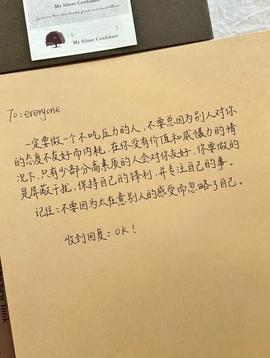 My Silent Confidant
My Silent Confidant
To:everyone
一定要做一个不吃压力的人,不要总因为别人对你
的态度不友好而内耗,在你没有价值和威慑力的情
况下,只有少部分高素质的人会对你友好,你要做的
是屏蔽干扰,保持自己的锋利,并专注自己的事。
记住:不要因为太在意别人的感受而忽略了自己。
收到回复:OK!
look